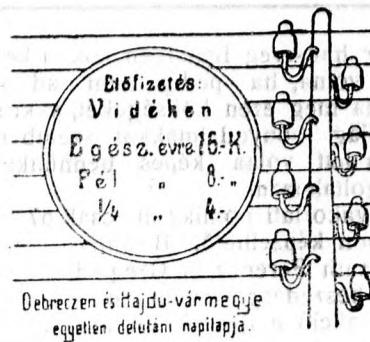 Előfizetés
Vidéken
Egész évre 16.-K.
Fél " 8.-"
1/4 " 4.-
Debreczen és Hajdu-vármegye
egyetlen délutáni napilapja.